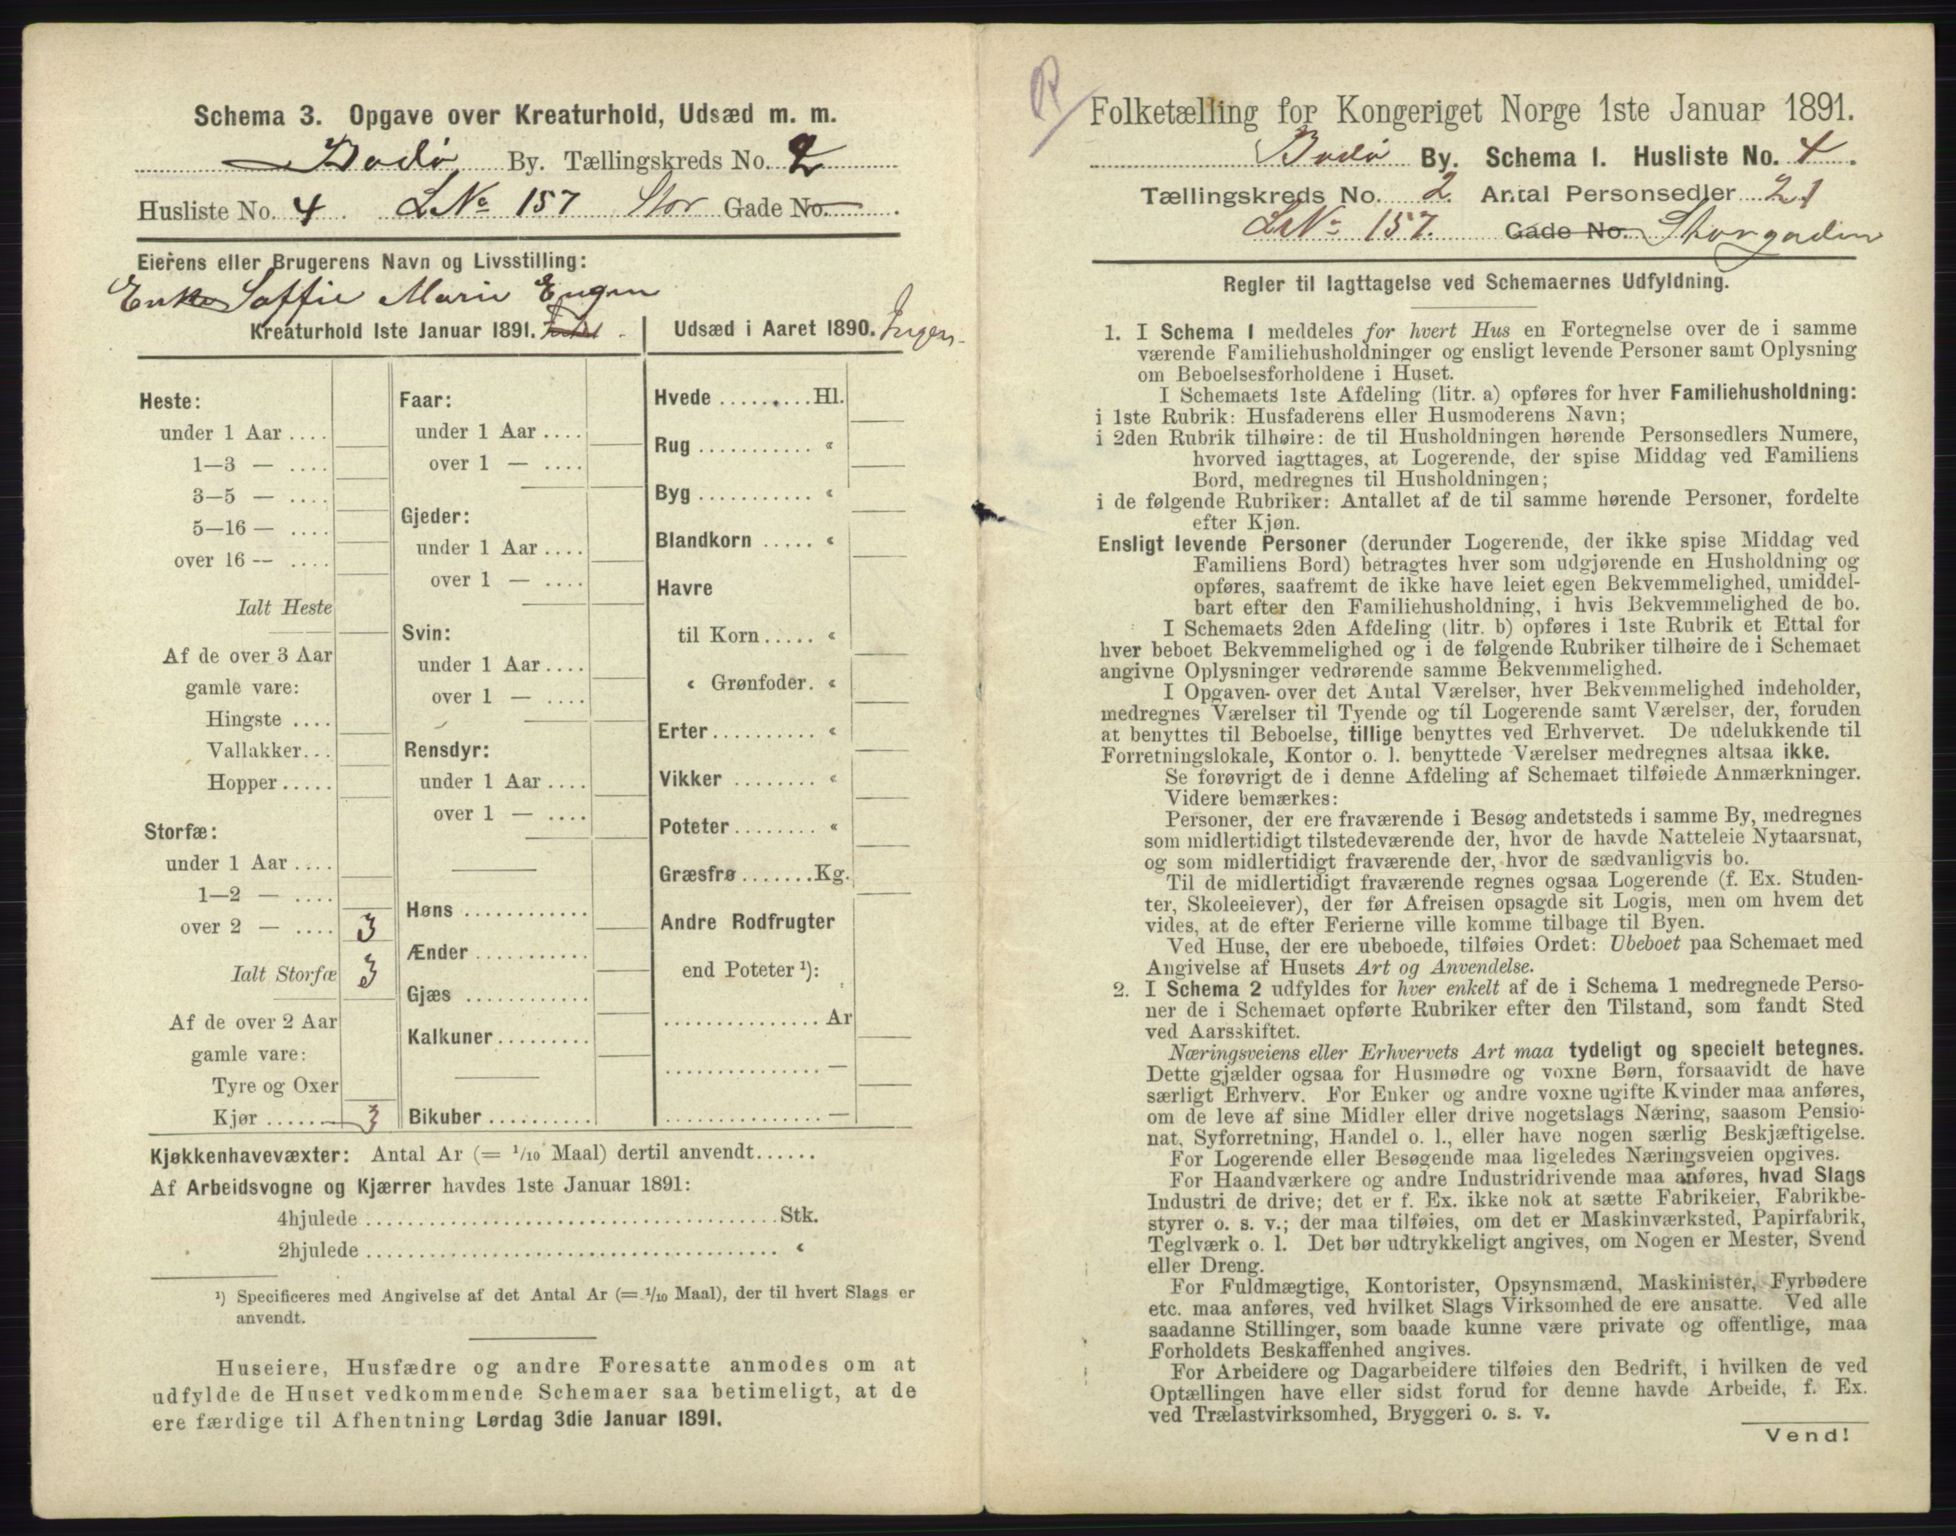 Schema 3. Opgave over Kreaturhold, Udsæd m. m.
Bodø By. Tællingskreds No. 2
Husliste No. 4 LNo 157 Stor Gade No.
Eierens eller Brugerens Navn og Livsstilling:
Enke Soffie Marie Engen
Kreaturhold 1ste Januar 1891. Udsæd i Aaret 1890. Ingen.
Heste:
under 1 Aar ....
1—3 — ....
3—5 — ....
5—16 — ....
over 16 — ....
Ialt Heste
Af de over 3 Aar
gamle vare:
Hingste ....
Vallakker...
Hopper.....
Storfæ:
under 1 Aar ....
1—2 — ....
over 2 — .... 3
Ialt Storfæ 3
Af de over 2 Aar
gamle vare:
Tyre og Oxer
Kjør ........ 3
Faar:
under 1 Aar ....
over 1 — ....
Gjeder:
under 1 Aar ....
over 1 — ....
Svin:
under 1 Aar ....
over 1 — ....
Rensdyr:
under 1 Aar ....
over 1 — ....
Høns ............
Ænder ...........
Gjæs ............
Kalkuner.........
Bikuber ..........
Hvede .........Hl.
Rug ........... «
Byg ........... «
Blandkorn ..... «
Havre
til Korn..... «
« Grønfoder. «
Erter.......... «
Vikker ........ «
Poteter........ «
Græsfrø .......Kg.
Andre Rodfrugter
end Poteter ¹):
............... Ar
............... —
............... —
Kjøkkenhavevæxter: Antal Ar (= 1/10 Maal) dertil anvendt......
Af Arbeidsvogne og Kjærrer havdes 1ste Januar 1891:
4hjulede ........................................Stk.
2hjulede ........................................ «
¹) Specificeres med Angivelse af det Antal Ar (= 1/10 Maal), der til hvert Slags er
anvendt.
Huseiere, Husfædre og andre Foresatte anmodes om at
udfylde de Huset vedkommende Schemaer saa betimeligt, at de
ere færdige til Afhentning Lørdag 3die Januar 1891.
Folketælling for Kongeriget Norge 1ste Januar 1891.
Bodø By. Schema 1. Husliste No. 4.
Tællingskreds No. 2. Antal Personsedler 21
LNo 157. Gade No. Storgaden
Regler til Iagttagelse ved Schemaernes Udfyldning.
1. I Schema 1 meddeles for hvert Hus en Fortegnelse over de i samme
værende Familiehusholdninger og ensligt levende Personer samt Oplysning
om Beboelsesforholdene i Huset.
I Schemaets 1ste Afdeling (litr. a) opføres for hver Familiehusholdning:
i 1ste Rubrik: Husfaderens eller Husmoderens Navn;
i 2den Rubrik tilhøire: de til Husholdningen hørende Personsedlers Numere,
hvorved iagttages, at Logerende, der spise Middag ved Familiens
Bord, medregnes til Husholdningen;
i de følgende Rubriker: Antallet af de til samme hørende Personer, fordelte
efter Kjøn.
Ensligt levende Personer (derunder Logerende, der ikke spise Middag ved
Familiens Bord) betragtes hver som udgjørende en Husholdning og
opføres, saafremt de ikke have leiet egen Bekvemmelighed, umiddel-
bart efter den Familiehusholdning, i hvis Bekvemmelighed de bo.
I Schemaets 2den Afdeling (litr. b) opføres i 1ste Rubrik et Ettal for
hver beboet Bekvemmelighed og i de følgende Rubriker tilhøire de i Schemaet
angivne Oplysninger vedrørende samme Bekvemmelighed.
I Opgaven over det Antal Værelser, hver Bekvemmelighed indeholder,
medregnes Værelser til Tyende og til Logerende samt Værelser, der, foruden
at benyttes til Beboelse, tillige benyttes ved Erhvervet. De udelukkende til
Forretningslokale, Kontor o. l. benyttede Værelser medregnes altsaa ikke.
Se forøvrigt de i denne Afdeling af Schemaet tilføiede Anmærkninger.
Videre bemærkes:
Personer, der ere fraværende i Besøg andetsteds i samme By, medregnes
som midlertidigt tilstedeværende der, hvor de havde Natteleie Nytaarsnat,
og som midlertidigt fraværende der, hvor de sædvanligvis bo.
Til de midlertidigt fraværende regnes ogsaa Logerende (f. Ex. Studen-
ter, Skoleeiever), der før Afreisen opsagde sit Logis, men om hvem det
vides, at de efter Ferierne ville komme tilbage til Byen.
Ved Huse, der ere ubeboede, tilføies Ordet: Ubeboet paa Schemaet med
Angivelse af Husets Art og Anvendelse.
2. I Schema 2 udfyldes for hver enkelt af de i Schema 1 medregnede Perso-
ner de i Schemaet opførte Rubriker efter den Tilstand, som fandt Sted
ved Aarsskiftet.
Næringsveiens eller Erhvervets Art maa tydeligt og specielt betegnes.
Dette gjælder ogsaa for Husmødre og voxne Børn, forsaavidt de have
særligt Erhverv. For Enker og andre voxne ugifte Kvinder maa anføres,
om de leve af sine Midler eller drive nogetslags Næring, saasom Pensio-
nat, Syforretning, Handel o. l., eller have nogen særlig Beskjæftigelse.
For Logerende eller Besøgende maa ligeledes Næringsveien opgives.
For Haandværkere og andre Industridrivende maa anføres, hvad Slags
Industri de drive; det er f. Ex. ikke nok at sætte Fabrikeier, Fabrikbe-
styrer o. s. v.; der maa tilføies, om det er Maskinværksted, Papirfabrik,
Teglværk o. l. Det bør udtrykkeligt angives, om Nogen er Mester, Svend
eller Dreng.
For Fuldmægtige, Kontorister, Opsynsmænd, Maskinister, Fyrbødere
etc. maa anføres, ved hvilket Slags Virksomhed de ere ansatte. Ved alle
saadanne Stillinger, som baade kunne være private og offentlige, maa
Forholdets Beskaffenhed angives.
For Arbeidere og Dagarbeidere tilføies den Bedrift, i hvilken de ved
Optællingen have eller sidst forud for denne havde Arbeide, f. Ex.
ved Trælastvirksomhed, Bryggeri o. s. v.
Vend!